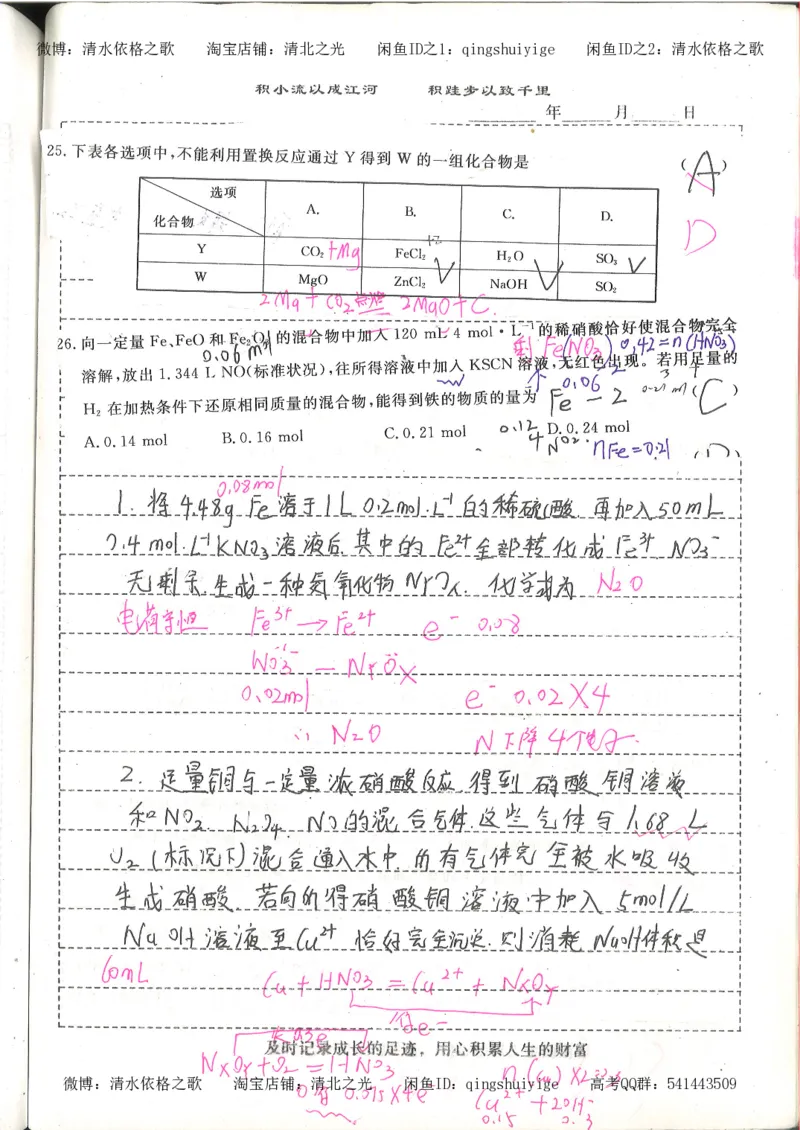 微博：清水依格之歌 淘宝店铺：清北之光 闲鱼ID之1：qingshuiyige 闲鱼ID之2：清水依格之歌
积小流以成江河 积跬步以致千里
年 月 日
25. 下表各选项中，不能利用置换反应通过 Y 得到 W 的一组化合物是 (A)
D
选项 A. B. C. D.
化合物
Y CO₂ +Mg FeCl₂ +Z H₂O SO₃
W MgO ZnCl₂ NaOH SO₂
2Mg + CO₂ 点燃 2MgO + C.
26. 向一定量 Fe、FeO 和 Fe₂O₃ 的混合物中加入 120 mL 4 mol·L⁻¹ 的稀硝酸恰好使混合物完全
0.06 mol 剩 Fe(NO₃)₂ 0.42=n(HNO₃)
溶解，放出 1.344 L NO(标准状况)，往所得溶液中加入 KSCN 溶液，无红色出现。若用足量的
0.06
H₂ 在加热条件下还原相同质量的混合物，能得到铁的物质的量为 Fe — 2 0.21 mol (C)
A. 0.14 mol B. 0.16 mol C. 0.21 mol D. 0.24 mol
0.12 nFe=0.21
0.08mol
1. 将 4.48g Fe 溶于 1L 0.2mol·L⁻¹ 的稀硫酸. 再加入 50mL
0.4 mol·L⁻¹ KNO₃ 溶液后 其中的 Fe²⁺ 全部转化成 Fe³⁺ NO₃⁻
无剩余. 生成一种氮氧化物 NyOx. 化学式为 N₂O
电荷守恒 Fe³⁺ → Fe²⁺ e⁻ 0.08
NO₃⁻ — NyOx
0.02mol e⁻ 0.02×4
∴ N₂O N下降4个电子.
2. 足量铜与一定量浓硝酸反应 得到硝酸铜溶液
和 NO₂ N₂O₄ NO 的混合气体. 这些气体与 1.68 L
O₂ (标况下) 混合通入水中 所有气体完全被水吸收
生成硝酸. 若向所得硝酸铜溶液中加入 5mol/L
NaOH 溶液至 Cu²⁺ 恰好完全沉淀. 则消耗 NaOH 体积是
60mL Cu + HNO₃ = Cu²⁺ + NxOy
得e⁻
及时记录成长的足迹，用心积累人生的财富
NxOy + O₂ = HNO₃ n(Cu)×2
微博：清水依格之歌 淘宝店铺：清北之光 闲鱼ID：qingshuiyige 高考QQ群：541443509
0.075×4e Cu²⁺ + 2OH⁻
0.15 0.3